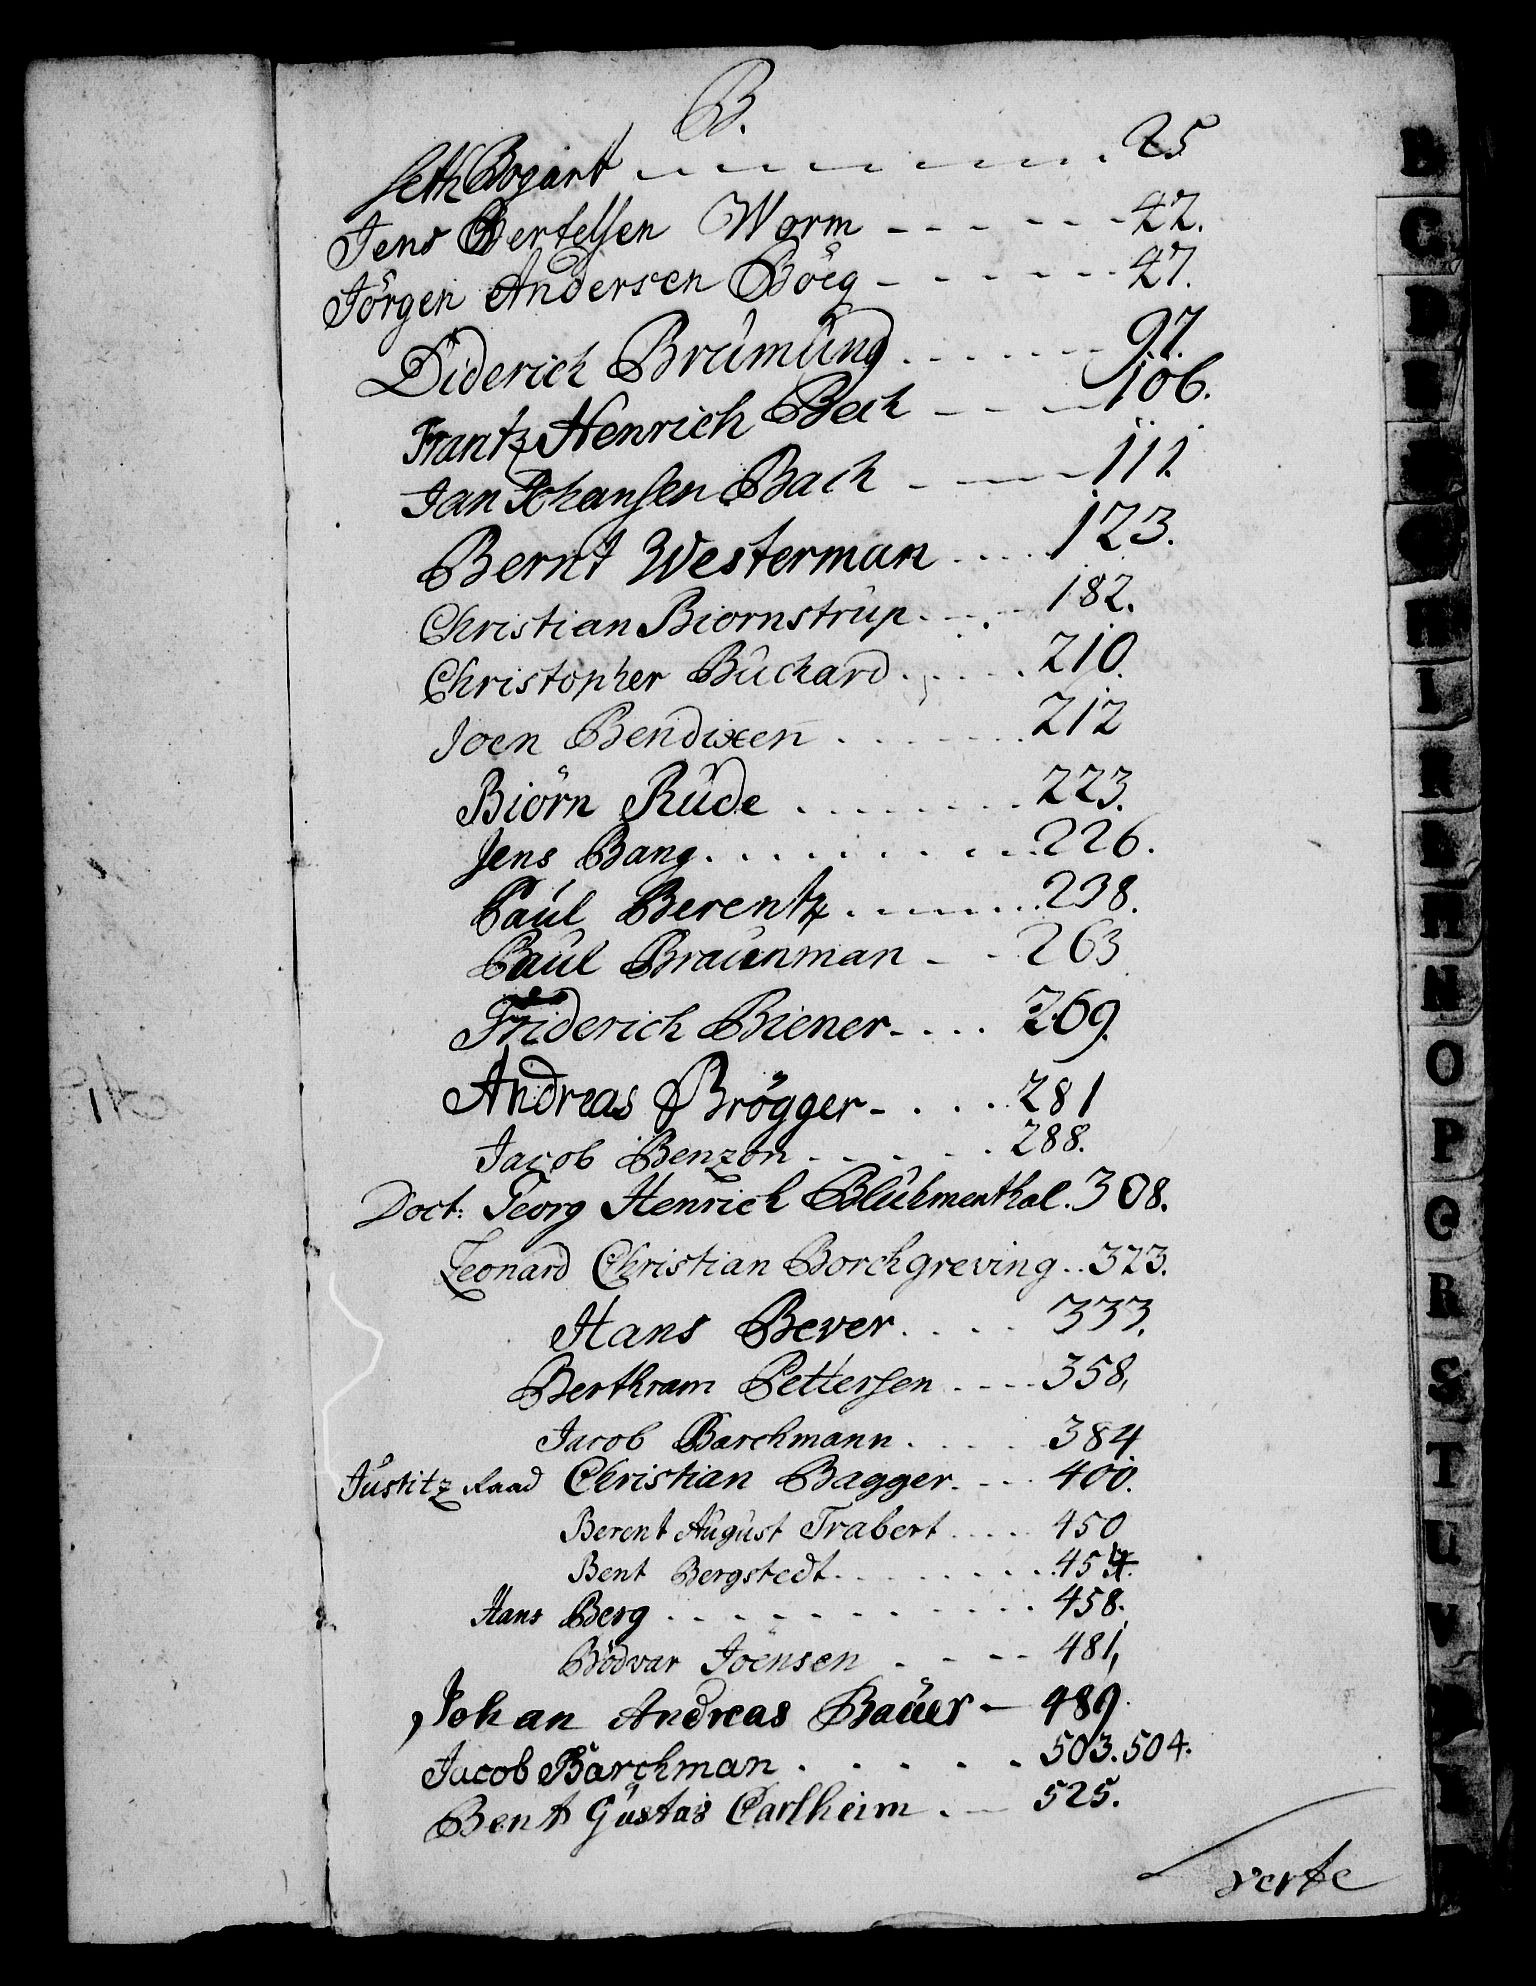 B.
Seth Bogart - - - - - - - - 25
Jens Bertelsen Worm - - - - - - 42.
Jörgen Andersen Böeg - - - - - - 47.
Diderich Brümünd . - - - - - - 97.
Frantz Henrich Bech - - - 106.
Jan Johansen Bach - - - 111.
Bernt Westerman . . . . 123.
Christian Biornstrüp . - - . - 182.
Christopher Büchard . . . . . 210.
Joen Bendixen . . . . . . 212
Biörn Rüde . . . . . . . 223.
Jens Bang . . . . . . . . . . 226.
Paül Berentz . - - - - . . . 238.
Paül Braünman - - 263
Friderich Biener - . . . 269.
Andreas Brögger - . . . . 281
Jacob Benzon . . . . . . 288.
Doct: Georg Henrich Blühmenthal . 308.
Leonard Christian Borchgreving . . 323.
Hans Bever . . . . 333.
Berthram Pettersen . . . . 358,
Jacob Barchmann . . . . 384
Jüstitz Raad Christian Bagger . . . 400.
Berent Aügüst Trabert . . . . 450
Bent Bergstedt . . . . . . . . 454.
Hans Berg . . . . . . . . . . . . 458.
Bödvar Joensen . . . . . 481,
Johan Andreas Baüer - 489.
Jacob Barchman . . . . . 503. 504.
Bent Güstav Carlheim . - 525.
verte
B
C
D
H
I
K
L
M
N
O
P
Q
R
S
T
U
V